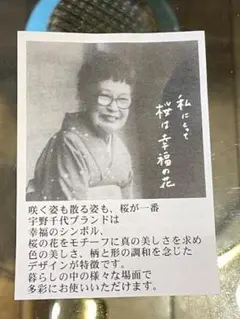 私にとって
桜は幸福の花
咲く姿も散る姿も、桜が一番
宇野千代ブランドは
幸福のシンボル、
桜の花をモチーフに真の美しさを求め
色の美しさ、柄と形の調和を念じた
デザインが特徴です。
暮らしの中の様々な場面で
多彩にお使いいただけます。